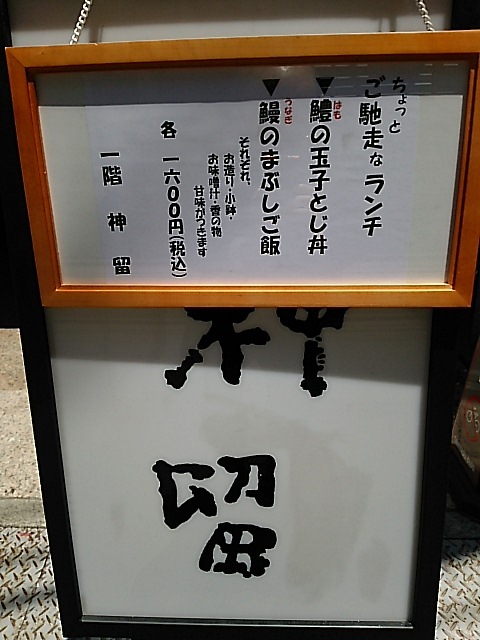 ちょっと
ご馳走なランチ
▼鱧の玉子とじ丼
はも
▼鰻のまぶしご飯
うなぎ
それぞれ、
お造り・小鉢・
お味噌汁・香の物
甘味がつきます
各 一六〇〇円(税込)
一階 神留
神留